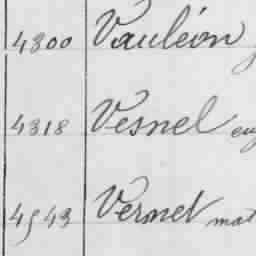 4300 Vauléon
4318 Vesnel eug
4543 Vermet mat